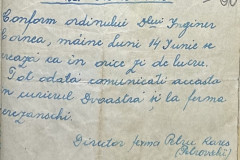 Conform ordinului Dlui Inginer
Cornea, mâine Luni 14 Iunie se
crează ca in orice zi de lucru.
Tot odată comunicati aceasta
in curierul Dvoastră și la ferma
Director
Petru Rares
(Petrovski)